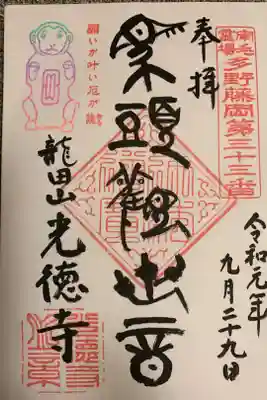 奉拝
南毛霊場
多野藤岡第三十三番
令和元年
九月二十九日
馬頭觀世音
願いが叶い厄が
龍田山光徳寺